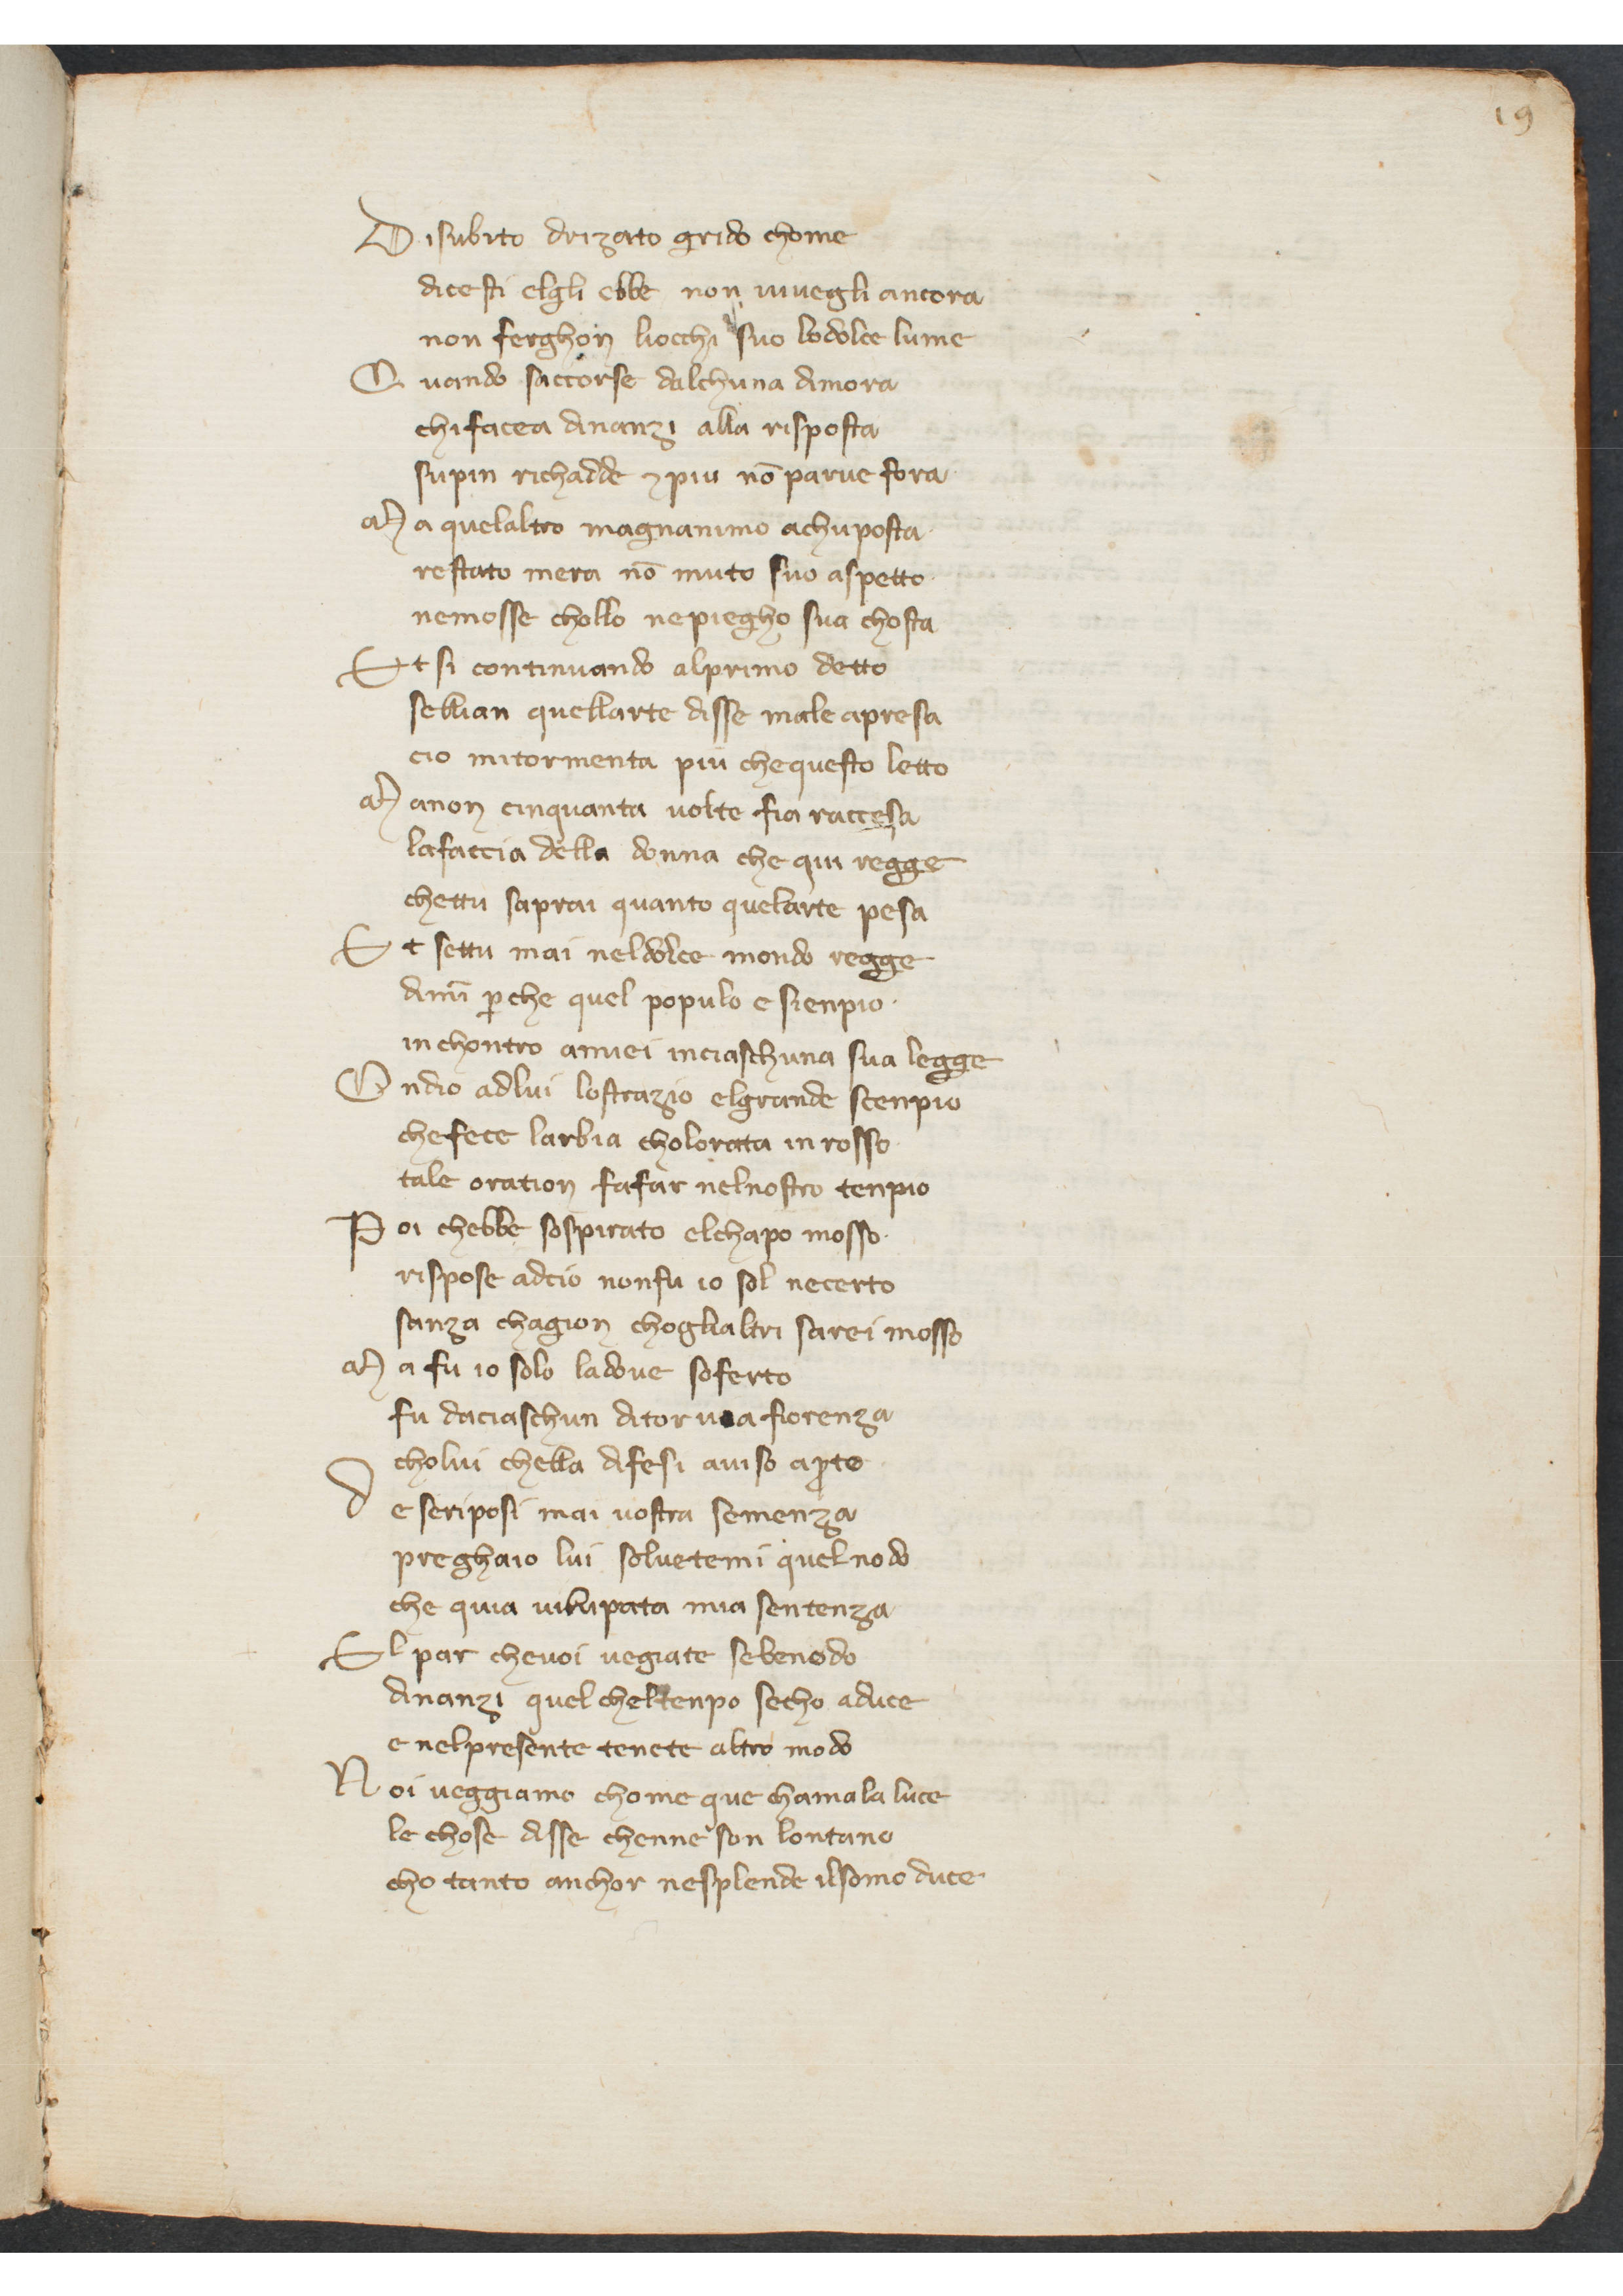 19
Disubito drizato grido chome
dicesti elgli ebbe non vivegli ancora
non ferghon liocchi suo lodolce lume
Quando saccorse dalchuna dimora
chifacea dinanzi alla risposta
supin richadde ⁊ piu nō parve fora
Ma quelaltro magnanimo achuposta
restato mera nō muto suo aspetto
nemosse chollo nepiegho sua chosta
Et si continuando alprimo detto
sellian quellarte disse male apresa
cio mitormenta piu chequesto letto
Manon cinquanta volte fia raccesa
lafaccia della donna che qui regge
chettu saprai quanto quelarte pesa
Et settu mai neldolce mondo regge
dimi ꝑche quel populo e sienpio
inchontro amiei inciaschuna sua legge
Ondio adlui lostrazio elgrande scenpio
chefece larbia cholorata in rosso
tale oration fafar nelnostro tenpio
Poi chebbe sospirato elchapo mosso
rispose adcio nonfu io sol necerto
sanza chagion choglialtri sarei mosso
Ma fu io solo ladove soferto
fu daciaschun ditor via fiorenza
cholui chella difesi aviso aꝑto
De seriposi mai vostra semenza
preghaio lui solvetemi quel nodo
che quia vilupata mia sentenza
El par chevoi vegiate sebenodo
dinanzi quel cheltenpo secho aduce
e nelpresente tenete altro modo
Noi veggiamo chome que chamala luce
le chose disse chenne son lontano
cho tanto anchor nesplende ilsomo duce